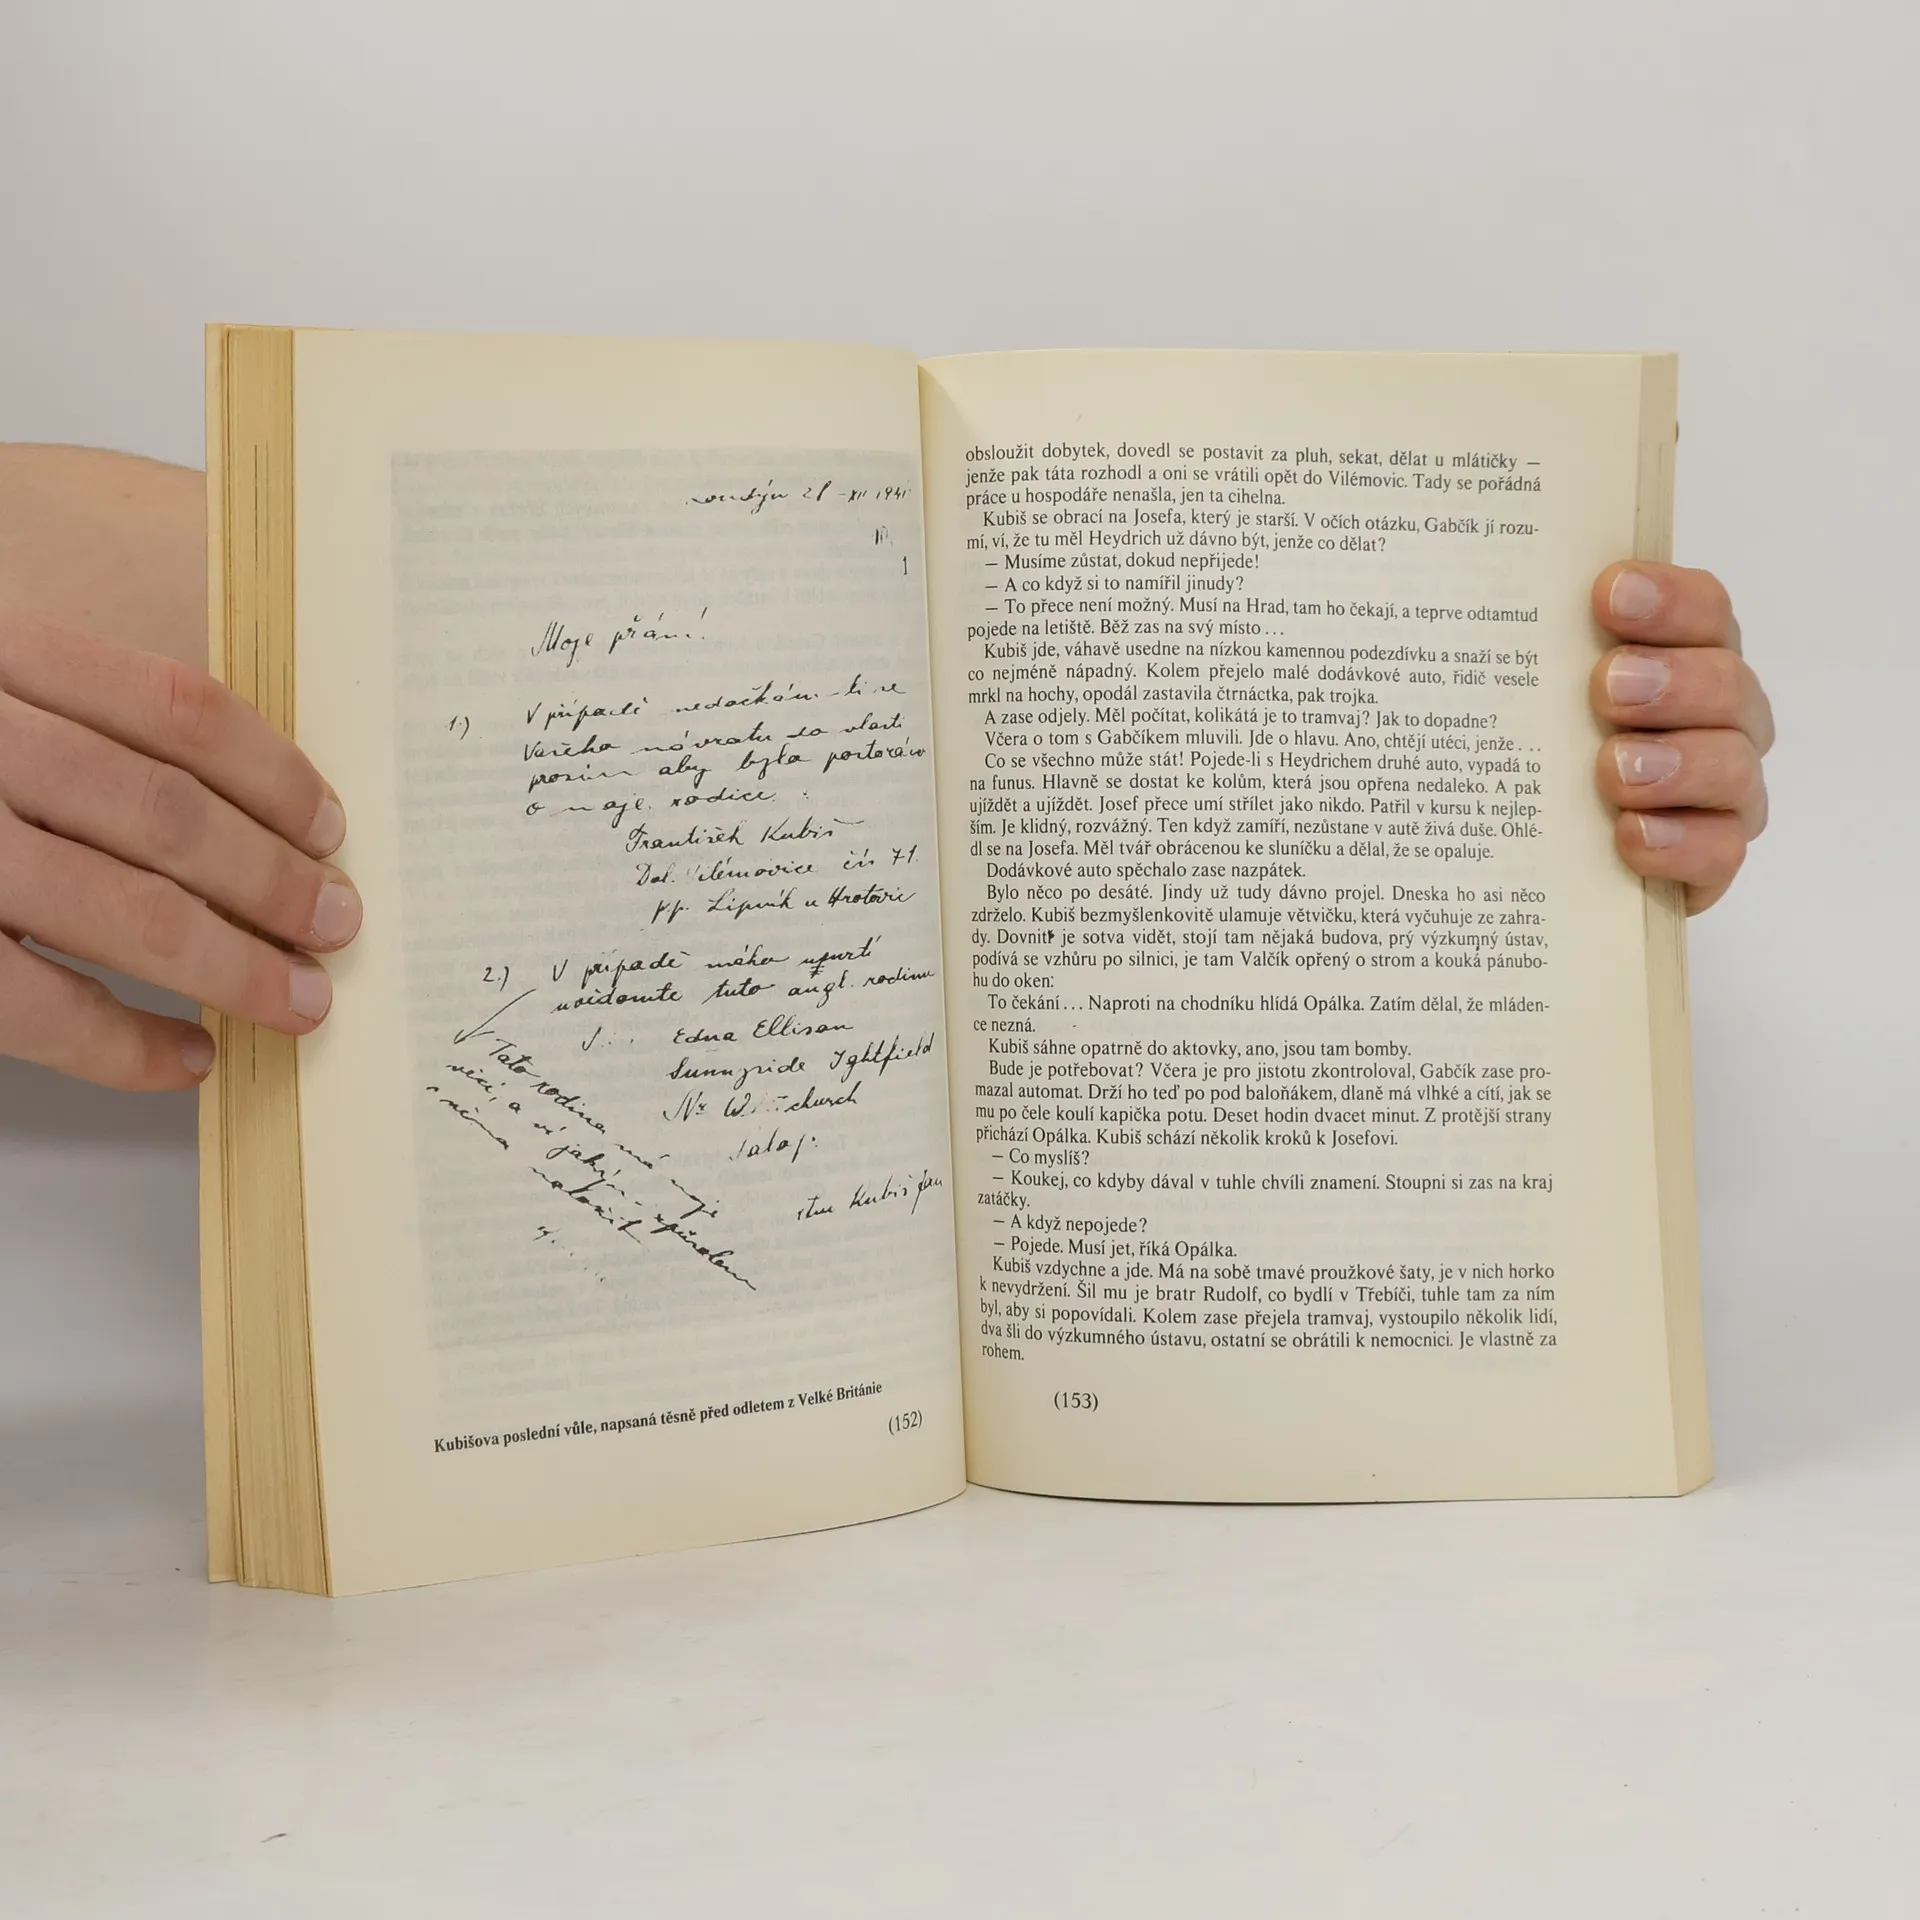 Londýn 28-XII 1941
Moje přání!
1.) V případě nedočkám-li se
Vašeho návratu do vlasti
prosím aby bylo postoráno
o moje rodiče:
František Kubiš
Dol. Vilémovice čís 71.
p.p. Lipník u Hrotovic
2.) V případě mého úmrtí
uvědomte tuto angl. rodinu
Edna Ellison
Sunnyside Ightfield
Nr Whitchurch
Salop.
Kubiš Jan
Tato rodina má moje
věci, a ví jakým způsobem
s nima naložit
Kubišova poslední vůle, napsaná těsně před odletem z Velké Británie
(152)
obsloužit dobytek, dovedl se postavit za pluh, sekat, dělat u mlátičky —
jenže pak táta rozhodl a oni se vrátili opět do Vilémovic. Tady se pořádná
práce u hospodáře nenašla, jen ta cihelna.
Kubiš se obrací na Josefa, který je starší. V očích otázku, Gabčík jí rozu-
mí, ví, že tu měl Heydrich už dávno být, jenže co dělat?
— Musíme zůstat, dokud nepřijede!
— A co když si to namířil jinudy?
— To přece není možný. Musí na Hrad, tam ho čekají, a teprve odtamtud
pojede na letiště. Běž zas na svý místo ...
Kubiš jde, váhavě usedne na nízkou kamennou podezdívku a snaží se být
co nejméně nápadný. Kolem přejelo malé dodávkové auto, řidič vesele
mrkl na hochy, opodál zastavila čtrnáctka, pak trojka.
A zase odjely. Měl počítat, kolikátá je to tramvaj? Jak to dopadne?
Včera o tom s Gabčíkem mluvili. Jde o hlavu. Ano, chtějí utéci, jenže ...
Co se všechno může stát! Pojede-li s Heydrichem druhé auto, vypadá to
na funus. Hlavně se dostat ke kolům, která jsou opřena nedaleko. A pak
ujíždět a ujíždět. Josef přece umí střílet jako nikdo. Patřil v kursu k nejlep-
ším. Je klidný, rozvážný. Ten když zamíří, nezůstane v autě živá duše. Ohlé-
dl se na Josefa. Měl tvář obrácenou ke sluníčku a dělal, že se opaluje.
Dodávkové auto spěchalo zase nazpátek.
Bylo něco po desáté. Jindy už tudy dávno projel. Dneska ho asi něco
zdrželo. Kubiš bezmyšlenkovitě ulamuje větvičku, která vyčuhuje ze zahra-
dy. Dovnitř je sotva vidět, stojí tam nějaká budova, prý výzkumný ústav,
podívá se vzhůru po silnici, je tam Valčík opřený o strom a kouká pánubo-
hu do oken:
To čekání ... Naproti na chodníku hlídá Opálka. Zatím dělal, že mláden-
ce nezná.
Kubiš sáhne opatrně do aktovky, ano, jsou tam bomby.
Bude je potřebovat? Včera je pro jistotu zkontroloval, Gabčík zase pro-
mazal automat. Drží ho teď po pod baloňákem, dlaně má vlhké a cítí, jak se
mu po čele koulí kapička potu. Deset hodin dvacet minut. Z protější strany
přichází Opálka. Kubiš schází několik kroků k Josefovi.
— Co myslíš?
— Koukej, co kdyby dával v tuhle chvíli znamení. Stoupni si zas na kraj
zatáčky.
— A když nepojede?
— Pojede. Musí jet, říká Opálka.
Kubiš vzdychne a jde. Má na sobě tmavé proužkové šaty, je v nich horko
k nevydržení. Šil mu je bratr Rudolf, co bydlí v Třebíči, tuhle tam za ním
byl, aby si popovídali. Kolem zase přejela tramvaj, vystoupilo několik lidí,
dva šli do výzkumného ústavu, ostatní se obrátili k nemocnici. Je vlastně za
rohem.
(153)